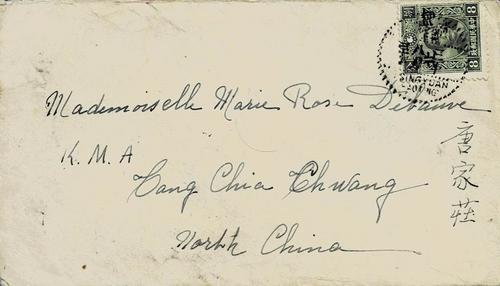 8 8
Mademoiselle Marie Rose Debauve
K. M. A
Tang Chia Chwang
North China
唐家莊